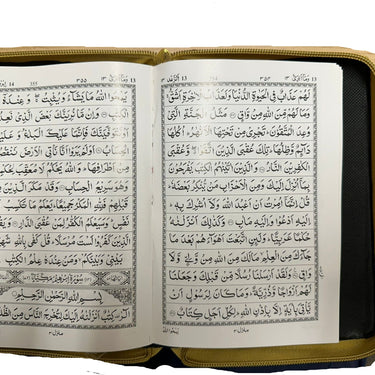 وَمَآ اُبَرِّئُ ١٣
٣٥٤
اَلرَّعْد ١٣
لَهُمْ عَذَابٌ فِى الْحَيٰوةِ الدُّنْيَا وَلَعَذَابُ الْاٰخِرَةِ اَشَقُّ ۚ
وَمَا لَهُمْ مِّنَ اللّٰهِ مِنْ وَّاقٍ ۞ مَثَلُ الْجَنَّةِ الَّتِىْ
وُعِدَ الْمُتَّقُوْنَ ؕ تَجْرِىْ مِنْ تَحْتِهَا الْاَنْهٰرُ ؕ اُكُلُهَا
دَآئِمٌ وَّظِلُّهَا ؕ تِلْكَ عُقْبَى الَّذِيْنَ اتَّقَوْا ۖ وَّعُقْبَى
الْكٰفِرِيْنَ النَّارُ ۞ وَالَّذِيْنَ اٰتَيْنٰهُمُ الْكِتٰبَ يَفْرَحُوْنَ
بِمَآ اُنْزِلَ اِلَيْكَ وَمِنَ الْاَحْزَابِ مَنْ يُّنْكِرُ بَعْضَهٗ ؕ
قُلْ اِنَّمَآ اُمِرْتُ اَنْ اَعْبُدَ اللّٰهَ وَلَآ اُشْرِكَ بِهٖ ؕ
اِلَيْهِ اَدْعُوْا وَاِلَيْهِ مَاٰبِ ۞ وَكَذٰلِكَ اَنْزَلْنٰهُ
حُكْمًا عَرَبِيًّا ؕ وَلَئِنِ اتَّبَعْتَ اَهْوَآءَهُمْ بَعْدَ مَا
جَآءَكَ مِنَ الْعِلْمِ ۙ مَا لَكَ مِنَ اللّٰهِ مِنْ وَّلِىٍّ وَّلَا
وَاقٍ ۞ وَلَقَدْ اَرْسَلْنَا رُسُلًا مِّنْ قَبْلِكَ وَجَعَلْنَا
لَهُمْ اَزْوَاجًا وَّذُرِّيَّةً ؕ وَمَا كَانَ لِرَسُوْلٍ اَنْ
يَّاْتِىَ بِاٰيَةٍ اِلَّا بِاِذْنِ اللّٰهِ ؕ لِكُلِّ اَجَلٍ كِتَابٌ ۞
منزل ٣
يَمْحُوا اللّٰهُ
وَمَآ اُبَرِّئُ ١٣
٣٥٥
355
يَمْحُوا اللّٰهُ مَا يَشَآءُ وَيُثْبِتُ ۖ وَعِنْدَهٗٓ
الْكِتٰبِ ۞ وَاِنْ مَّا نُرِيَنَّكَ بَعْضَ الَّذِىْ
اَوْ نَتَوَفَّيَنَّكَ فَاِنَّمَا عَلَيْكَ الْبَلٰغُ وَعَلَيْنَا
اَوَلَمْ يَرَوْا اَنَّا نَاْتِى الْاَرْضَ نَنْقُصُهَا
مِنْ اَطْرَافِهَا ؕ وَاللّٰهُ يَحْكُمُ لَا مُعَقِّبَ لِحُكْمِهٖ ؕ
وَهُوَ سَرِيْعُ الْحِسَابِ ۞ وَقَدْ مَكَرَ الَّذِيْنَ
قَبْلِهِمْ فَلِلّٰهِ الْمَكْرُ جَمِيْعًا ؕ يَعْلَمُ مَا تَكْسِبُ
نَفْسٍ ؕ وَسَيَعْلَمُ الْكُفّٰرُ لِمَنْ عُقْبَى الدَّارِ ۞
كَفَرُوْا لَسْتَ مُرْسَلًا ؕ قُلْ كَفٰى بِاللّٰهِ شَهِيْدًۢا
بَيْنِىْ وَبَيْنَكُمْ ۙ وَمَنْ عِنْدَهٗ عِلْمُ الْكِتٰبِ
سُوْرَةُ اِبْرٰهِيْمَ مَكِّيَّةٌ
بِسْمِ اللّٰهِ الرَّحْمٰنِ الرَّحِيْمِ
الٓرٰ ۚ كِتٰبٌ اَنْزَلْنٰهُ اِلَيْكَ لِتُخْرِجَ النَّاسَ مِنَ
منزل ٣